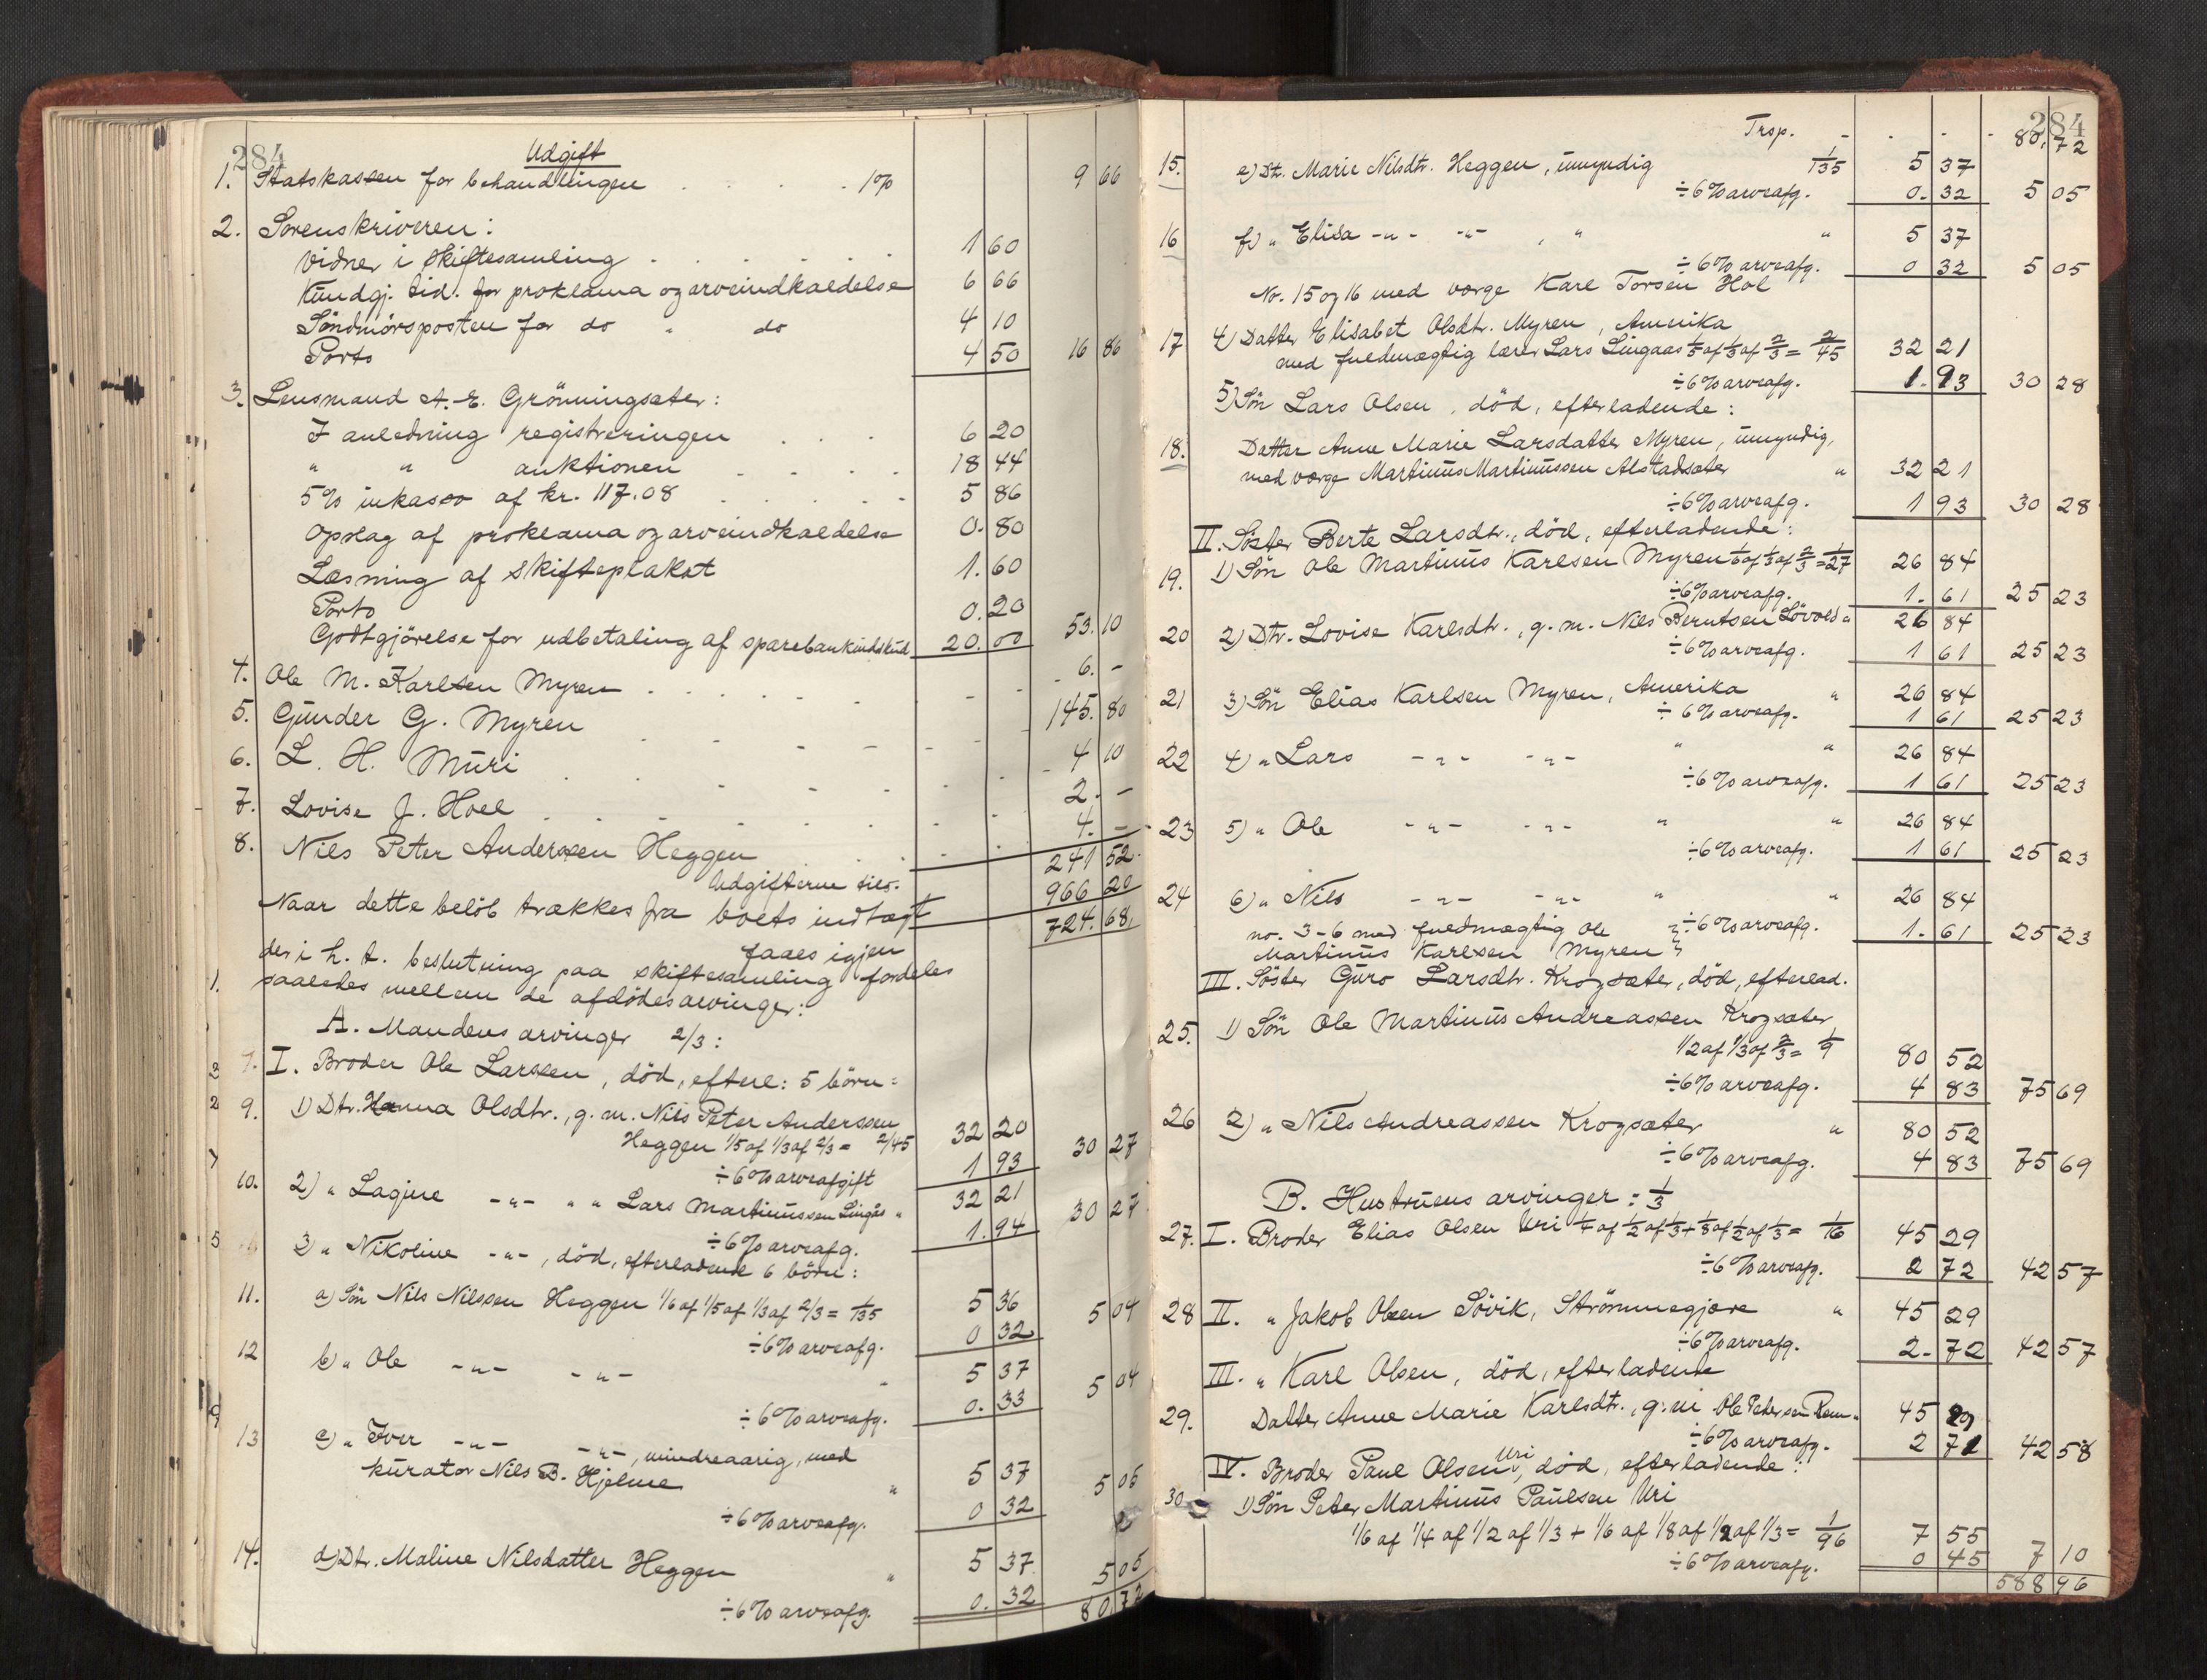 284
Udgift
1. Statskassen for behandlingen . . . . 1% 9 66
2. Sorenskriveren:
Vidner i skiftesamling . . . . . 1 60
Kundgj. tid. for proklama og arveindkaldelse 6 66
Söndmörsposten for do " do 4 10
Porto 4 50 16 86
3. Lensmand A. E. Grönningsæter:
I anledning registreringen . . . 6 20
" " auktionen . . . . 18 44
5% inkasso af kr. 117.08 . . . . . 5 86
Opslag af proklama og arveindkaldelse 0.80
Læsning af skifteplakat 1.60
Porto 0.20
Godtgjörelse for udbetaling af sparebankindskud 20.00 53.10
4. Ole M. Karlsen Myren . . . . . 6. -
5. Gunder G. Myren 145.80
6. L. H. Muri 4 10
7. Lovise J. Hoel 2. -
8. Nils Peter Anderssen Heggen 4. -
Udgifterne tils. 241 52
Naar dette belöb trækkes fra boets indtægt 966 20
faaes igjen 724.68,
der i h. t. beslutning paa skiftesamling fordeles
saaledes mellem de afdödes arvinger:
A. Mandens arvinger 2/3:
I. Broder Ole Larssen, död, efterl: 5 börn:
9. 1) Dtr. Hanna Olsdtr., g. m. Nils Peter Anderssen
Heggen 1/5 af 1/3 af 2/3 = 2/45 32 20
÷ 6% arveafgift 1 93 30 27
10. 2) " Lagine -"- " " Lars Martinussen Lingås " 32 21
÷ 6% arveafg. 1.94 30 27
3) " Nikoline -"-, död, efterladende 6 börn:
11. a) Sön Nils Nilssen Heggen 1/6 af 1/5 af 1/3 af 2/3 = 1/135 5 36
÷ 6% arveafg. 0 32 5 04
12 b) " Ole -"- -"- " 5 37
÷ 6% arveafg. 0.33 5 04
13 c) " Iver -"- -"-, mindreaarig, med
kurator Nils B. Hjelme " 5 37
÷ 6% arveafg. 0 32 5 05
14. d) Dtr. Maline Nilsdatter Heggen " 5 37
÷ 6% arveafg. 0.32 5 05
80.72
284
Trsp. - . - . 80.72
15. e) Dt. Marie Nilsdtr. Heggen, umyndig 1/135 5 37
÷ 6% arveafg. 0.32 5 05
16 f) " Elisa -"- -"- , " " 5 37
÷ 6% arveafg. 0 32 5 05
No. 15 og 16 med verge Karl Torsen Hol
17 4) Datter Elisabet Olsdtr. Myren, Amerika
med fuldmægtig lærer Lars Lingaas 1/5 af 1/3 af 2/3 = 2/45 32 21
÷ 6% arveafg. 1.93 30 28
5) Sön Lars Olsen, död, efterladende:
18. Datter Anne Marie Larsdatter Myren, umyndig,
med verge Martinus Martinussen Alstadsæter " 32 21
÷ 6% arveafg. 1 93 30 28
II. Söster Berte Larsdtr., död, efterladende:
19. 1) Sön Ole Martinus Karlsen Myren 1/6 af 1/3 af 2/3 = 1/27 26 84
÷ 6% arveafg. 1.61 25 23
20 2) Dtr. Lovise Karlsdtr., g. m. Nils Berntsen Lövold " 26 84
÷ 6% arveafg. 1 61 25 23
21 3) Sön Elias Karlsen Myren, Amerika " 26 84
÷ 6% arveafg. 1 61 25 23
22 4) " Lars -"- -"- " " 26 84
÷ 6% arveafg. 1 61 25 23
23 5) " Ole -"- -"- " " 26 84
÷ 6% arveafg. 1 61 25 23
24 6) " Nils -"- -"- " " 26 84
no. 3-6 med fuldmægtig Ole } ÷ 6% arveafg. 1.61 25 23
Martinus Karlsen Myren }
III. Söster Guro Larsdtr. Krogsæter, död, efterlad.
25. 1) Sön Ole Martinus Andreassen Krogsæter
1/2 af 1/3 af 2/3 = 1/9 80 52
÷ 6% arveafg. 4 83 75 69
26 2) " Nils Andreassen Krogsæter " 80 52
÷ 6% arveafg. 4 83 75 69
B. Hustruens arvinger: 1/3
27. I. Broder Elias Olsen Uri 1/4 af 1/2 af 1/3 + 1/8 af 1/2 af 1/3 = 1/16 45 29
÷ 6% arveafg. 2 72 42 57
28 II. " Jakob Olsen Sövik, Strömmegjære " 45 29
÷ 6% arveafg. 2.72 42 57
III. " Karl Olsen, död, efterladende
29. Datter Anne Marie Karlsdtr., g. m. Ole Petersen Rem " 45 29
÷ 6% arveafg. 2 71 42 58
IV. Broder Paul Olsen Uri, död, efterladende:
30 1) Sön Peter Martinus Paulsen Uri
1/6 af 1/4 af 1/2 af 1/3 + 1/6 af 1/8 af 1/2 af 1/3 = 1/96 7 55
÷ 6% arveafg. 0 45 7 10
588 96